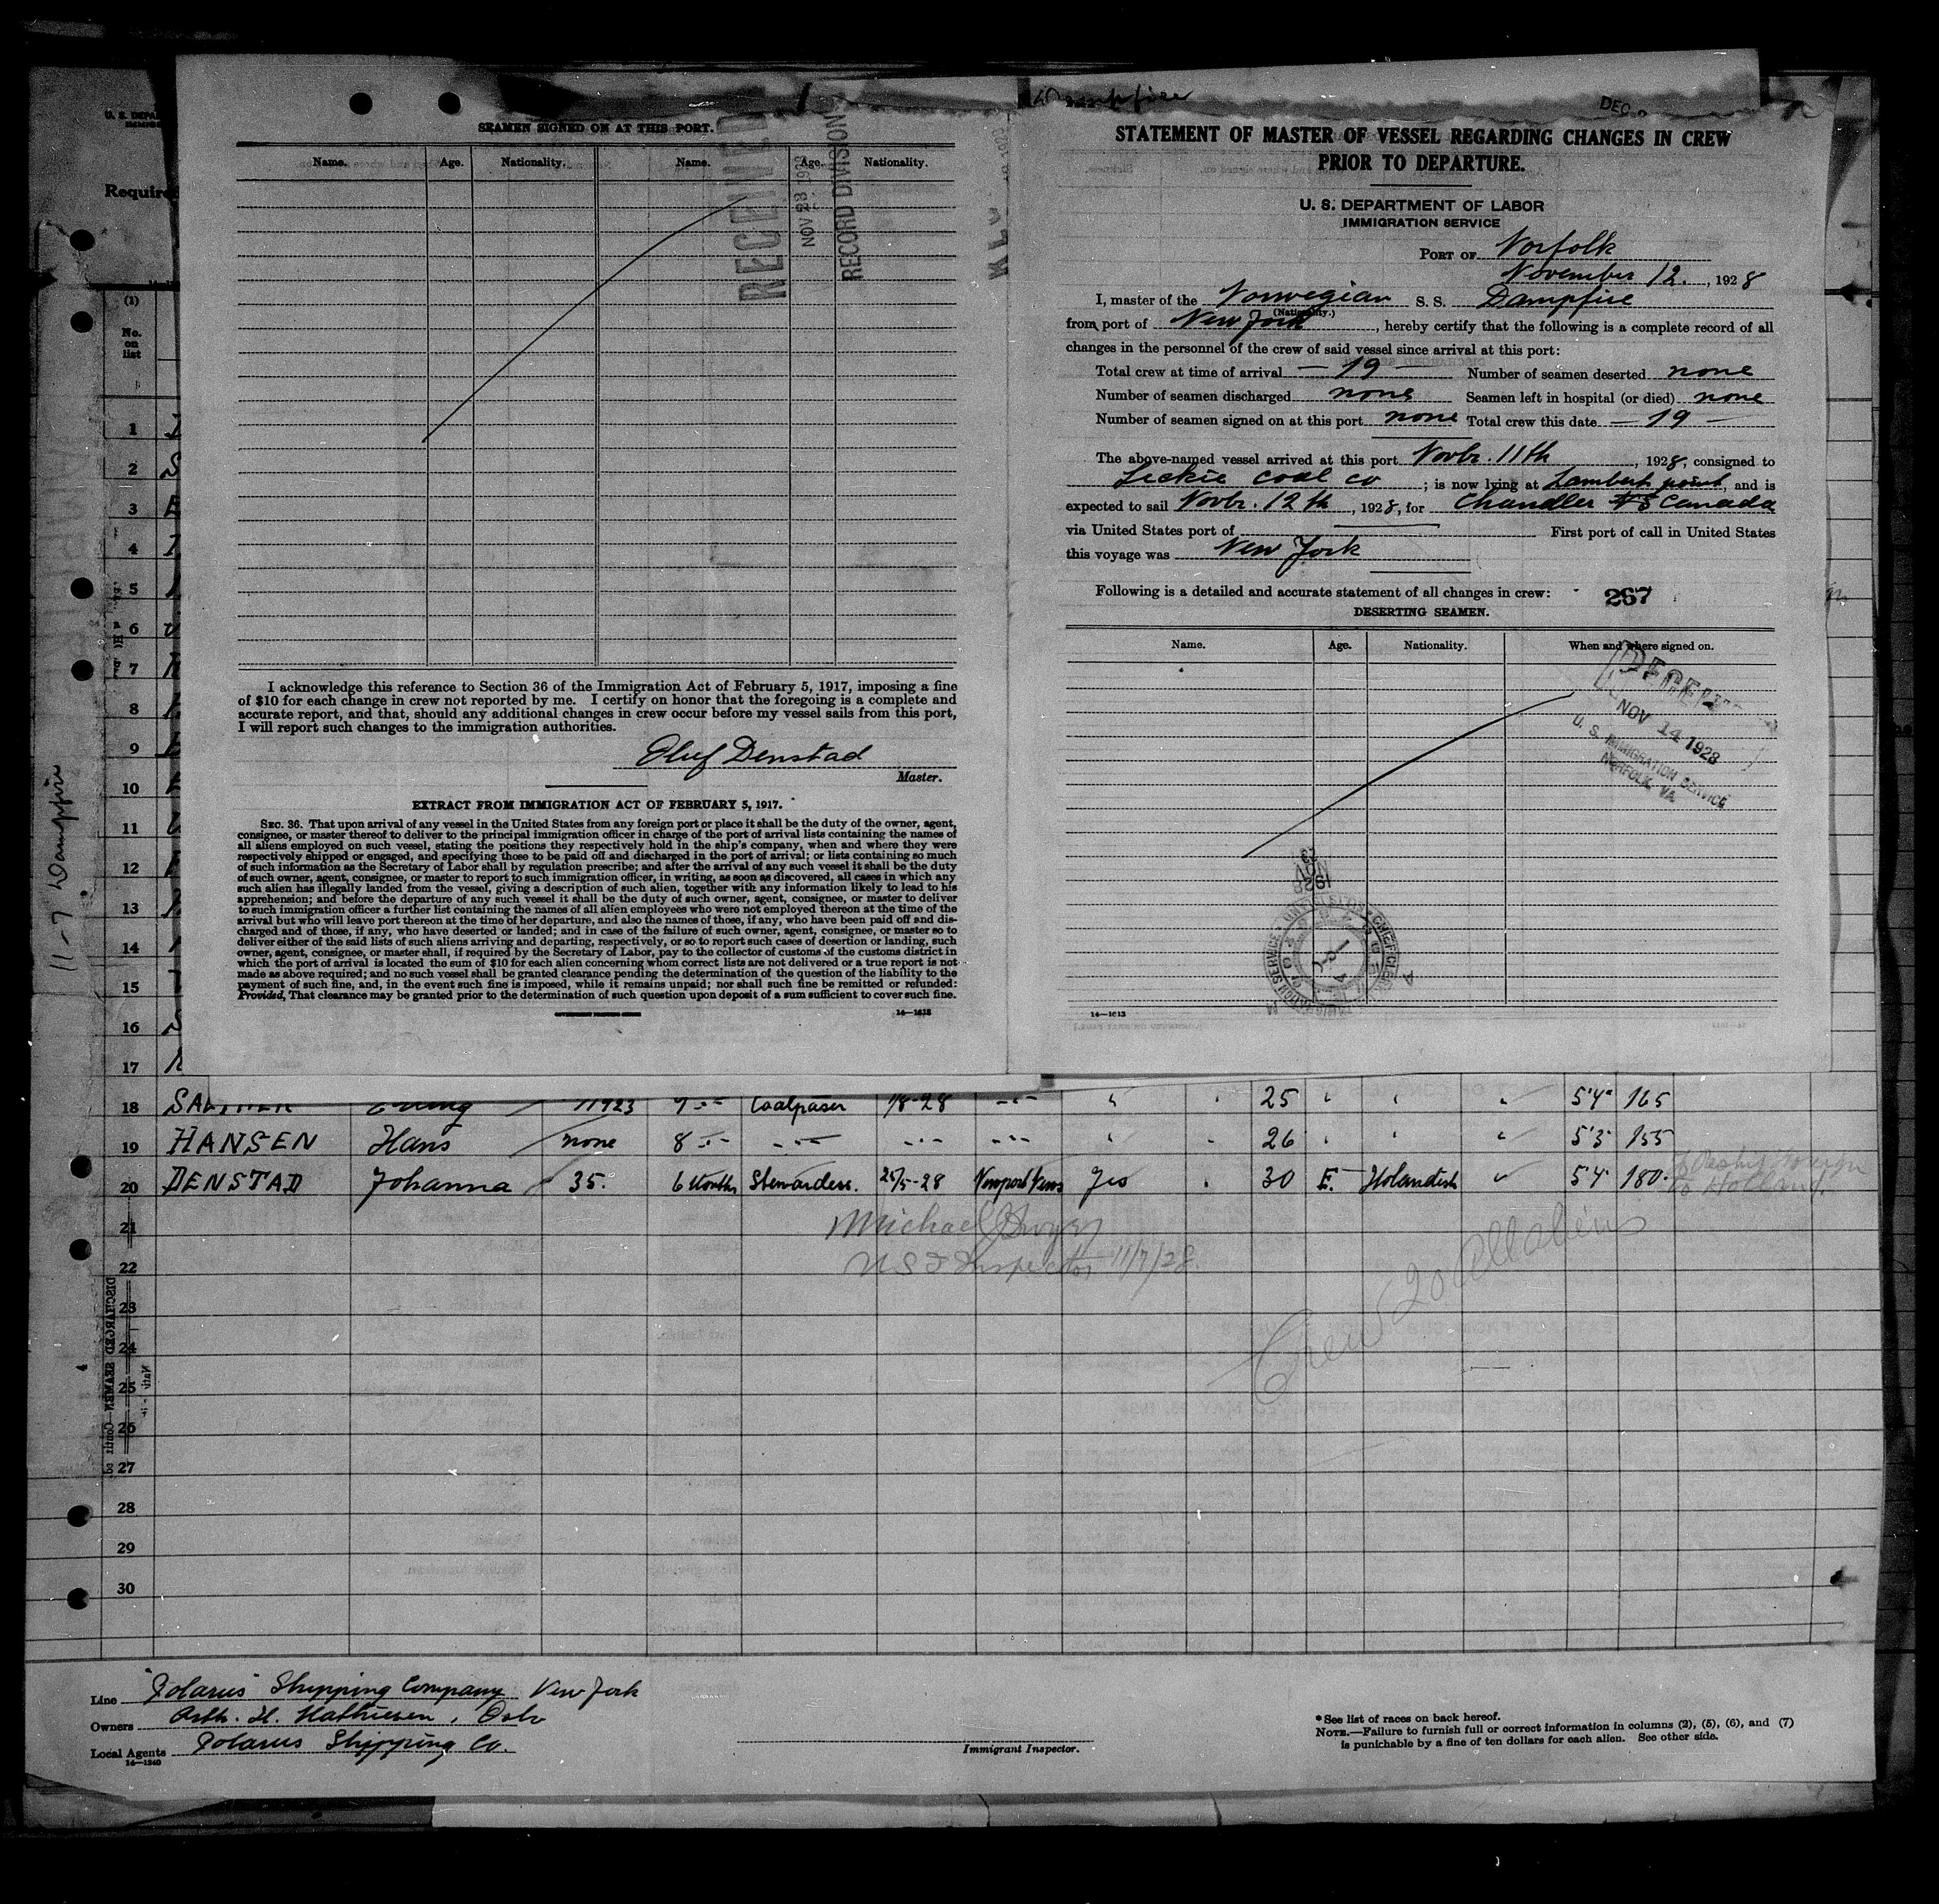 SEAMEN SIGNED ON AT THIS PORT.
Name. Age. Nationality. Name. Age. Nationality.
RECEIVED
NOV 23 1928
RECORD DIVISION
I acknowledge this reference to Section 36 of the Immigration Act of February 5, 1917, imposing a fine
of $10 for each change in crew not reported by me. I certify on honor that the foregoing is a complete and
accurate report, and that, should any additional changes in crew occur before my vessel sails from this port,
I will report such changes to the immigration authorities.
Oluf Denstad
Master.
EXTRACT FROM IMMIGRATION ACT OF FEBRUARY 5, 1917.
SEC. 36. That upon arrival of any vessel in the United States from any foreign port or place it shall be the duty of the owner, agent,
consignee, or master thereof to deliver to the principal immigration officer in charge of the port of arrival lists containing the names of
all aliens employed on such vessel, stating the positions they respectively hold in the ship's company, when and where they were
respectively shipped or engaged, and specifying those to be paid off and discharged in the port of arrival; or lists containing so much
of such information as the Secretary of Labor shall by regulation prescribe; and after the arrival of any such vessel it shall be the duty
of such owner, agent, consignee, or master to report to such immigration officer, in writing, as soon as discovered, all cases in which any
such alien has illegally landed from the vessel, giving a description of such alien, together with any information likely to lead to his
apprehension; and before the departure of any such vessel it shall be the duty of such owner, agent, consignee, or master to deliver
to such immigration officer a further list containing the names of all alien employees who were not employed thereon at the time of the
arrival but who will leave port thereon at the time of her departure, and also the names of those, if any, who have been paid off and dis-
charged and of those, if any, who have deserted or landed; and in case of the failure of such owner, agent, consignee, or master so to
deliver either of the said lists of such aliens arriving and departing, respectively, or so to report such cases of desertion or landing, such
owner, agent, consignee, or master shall, if required by the Secretary of Labor, pay to the collector of customs of the customs district in
which the port of arrival is located the sum of $10 for each alien concerning whom correct lists are not delivered or a true report is not
made as above required; and no such vessel shall be granted clearance pending the determination of the question of the liability to the
payment of such fine, and, in the event such fine is imposed, while it remains unpaid; nor shall such fine be remitted or refunded:
Provided, That clearance may be granted prior to the determination of such question upon deposit of a sum sufficient to cover such fine.
GOVERNMENT PRINTING OFFICE
14—1613
Dampfire
DEC
STATEMENT OF MASTER OF VESSEL REGARDING CHANGES IN CREW
PRIOR TO DEPARTURE.
U. S. DEPARTMENT OF LABOR
IMMIGRATION SERVICE
PORT OF Norfolk
November 12., 1928
I, master of the Norwegian S. S. Dampfire
(Nationality.)
from port of New York, hereby certify that the following is a complete record of all
changes in the personnel of the crew of said vessel since arrival at this port:
Total crew at time of arrival — 19 — Number of seamen deserted none
Number of seamen discharged none Seamen left in hospital (or died) none
Number of seamen signed on at this port none Total crew this date — 19 —
The above-named vessel arrived at this port Novbr. 11th, 1928, consigned to
Leckie Coal Co; is now lying at Lambert point, and is
expected to sail Novbr. 12th, 1928, for Chandler Canada
via United States port of First port of call in United States
this voyage was New York
Following is a detailed and accurate statement of all changes in crew: 267
DESERTING SEAMEN.
Name. Age. Nationality. When and where signed on.
NOV 14 1928
U. S. IMMIGRATION SERVICE
NORFOLK, VA
NOV
1928
14—1613
U. S. DEPA
Require
(1)
No.
on
list
1
2
3
4
5
6
7
8
9
10
11
12
13
14
15
16
17
11-7 Dampfire
18 11923 Coalpaser 1/8-28 25 5'4" 165
19 HANSEN Hans none 8 26 5'3" 155
20 DENSTAD Johanna 35. 6 Months Stewardess. 25/5-28 Newport News Yes 30 E. Holandish 5'4" 180.
to Holland.
21 Michael Dwyer
22 U S I Inspector 11/7/28
Crew 20 all aliens
23
24
25
26
27
28
29
30
DISCHARGED SEAMEN—Contin
Line "Polarus" Shipping Company New York
Owners Arth. H. Mathiesen, Oslo
Local Agents Polarus Shipping Co.
14—1240
Immigrant Inspector.
*See list of races on back hereof.
NOTE.—Failure to furnish full or correct information in columns (2), (5), (6), and (7)
is punishable by a fine of ten dollars for each alien. See other side.